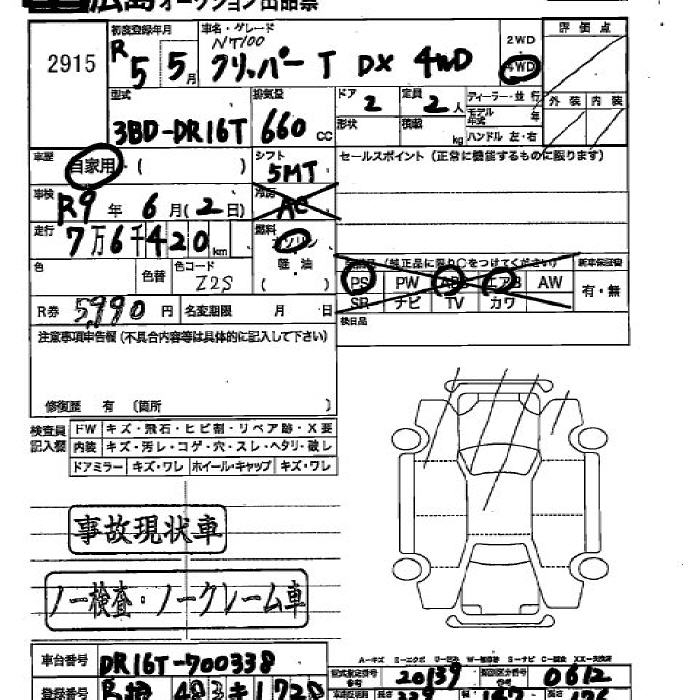 広島オークション出品票
2915
初度登録年月 R5 5月
車名・グレード NT100 クリッパー T DX 4WD
2WD 4WD
評価点
外装 内装
型式 3BD-DR16T
排気量 660 CC
ドア 2
形状
定員 2 人
積載 kg
ディーラー・並行
モデル年式 年
ハンドル 左・右
車歴 自家用・( )
シフト 5MT
セールスポイント(正常に機能するものに限ります)
車検 R9 年 6 月(2 日)
冷房 AC
走行 7万6千420km
燃料 ガソリン 軽油 ( )
色
色替
色コード Z2S
(純正品に限り〇をつけてください)
新車保証書
PS PW ABS エアB AW
有・無
SR ナビ TV カワ
R券 5,990 円
名変期限 月 日
後日品
注意事項申告欄(不具合内容等は具体的に記入して下さい)
修復歴 有 (箇所 )
検査員記入欄
FW キズ・飛石・ヒビ割・リペア跡・X要
内装 キズ・汚レ・コゲ・穴・スレ・ヘタリ・破レ
ドアミラー キズ・ワレ ホイール・キャップ キズ・ワレ
事故現状車
ノー検査・ノークレーム車
車台番号 DR16T-700338
型式指定番号 参考 20139
類別区分番号 参考 0612
登録番号